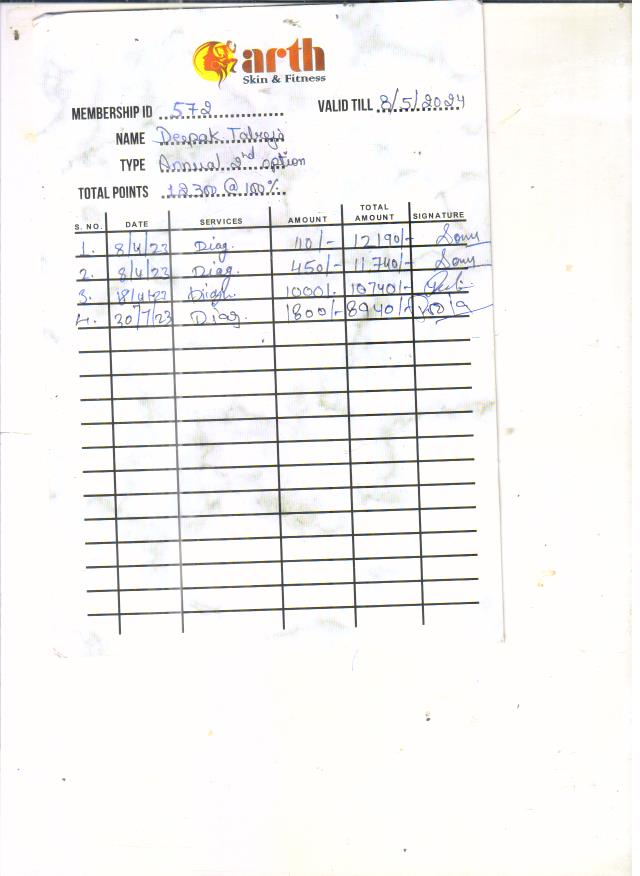 arth
Skin & Fitness
MEMBERSHIP ID 572 VALID TILL 8/5/2024
NAME Deepak Talreja
TYPE Annual 2nd option
TOTAL POINTS 12300 @ 100%
S. NO. DATE SERVICES AMOUNT TOTAL AMOUNT SIGNATURE
1. 8/4/23 Diag. 110/- 12190/- Sonu
2. 8/4/23 Diag. 450/- 11740/- Sonu
3. 18/4/23 1000/- 10740/-
4. 30/7/23 Diag. 1800/- 8940/-